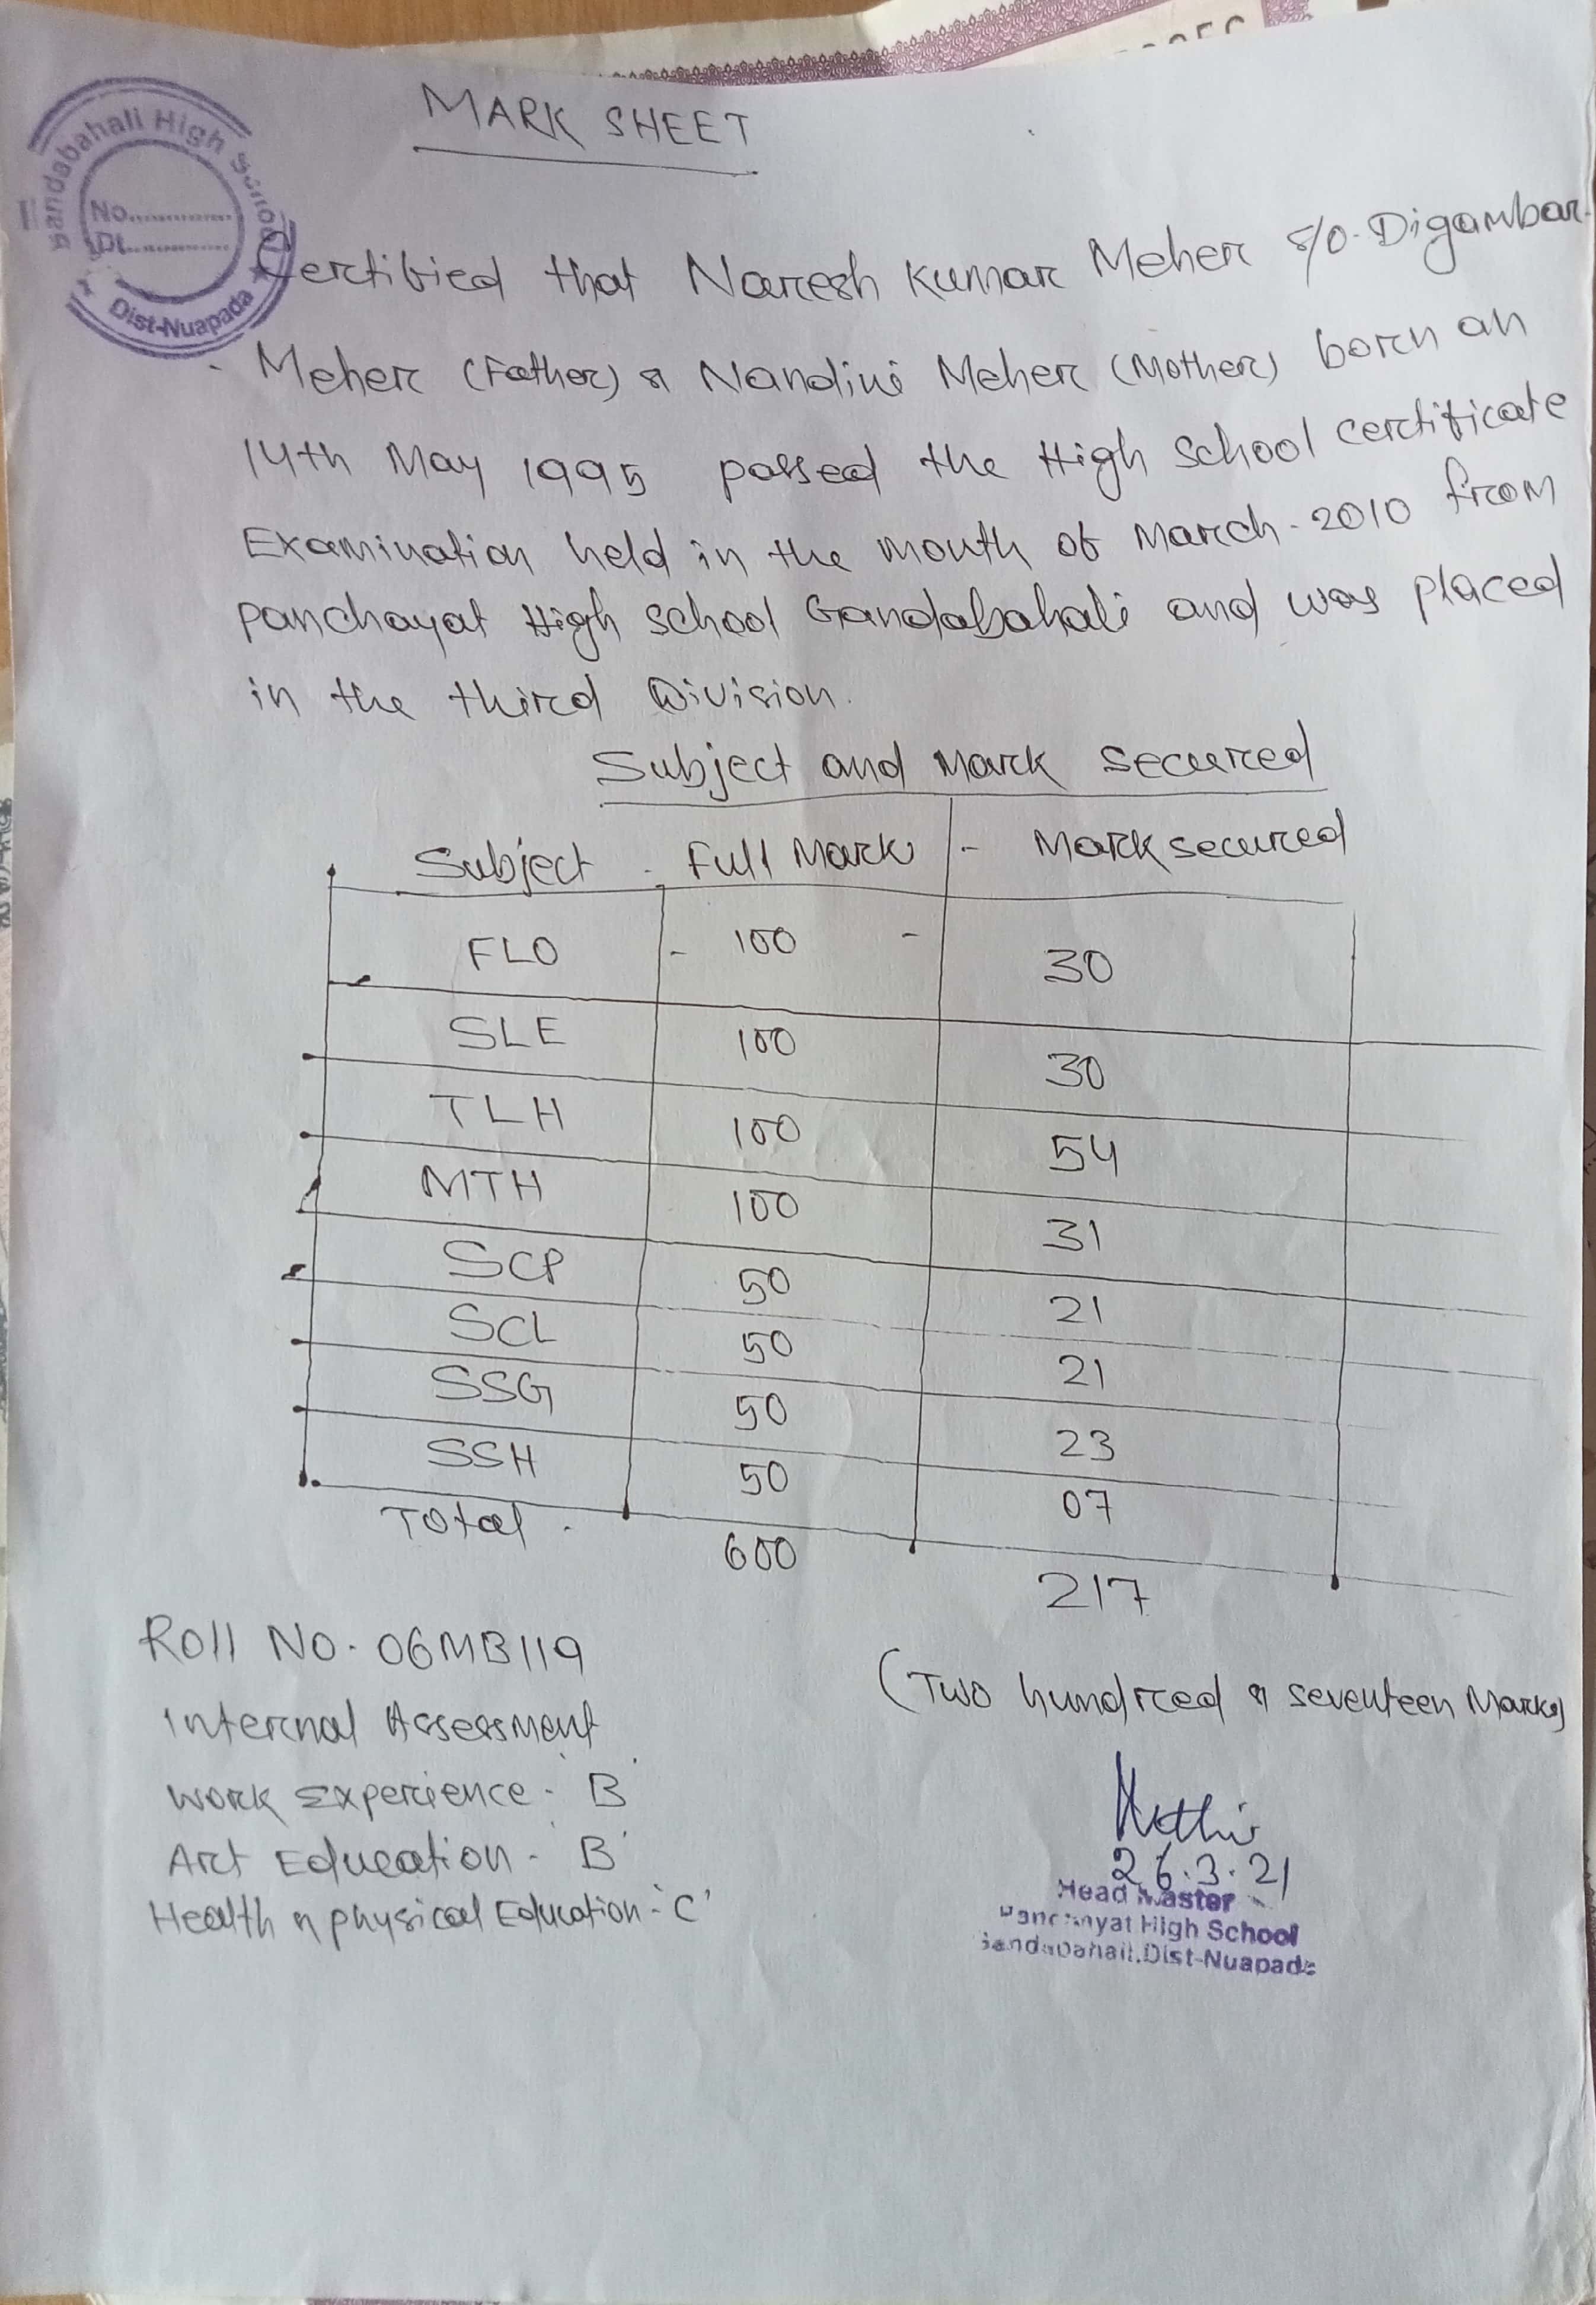 MARK SHEET
Gandabahali High School
No...............
Dt..............
Dist-Nuapada
Certified that Naresh Kumar Meher S/O. Digambar
Meher (Father) & Nandini Meher (Mother) born on
14th May 1995 passed the High School Certificate
Examination held in the month of March-2010 from
Panchayat High School Gandabahali and was placed
in the third Division.
Subject and Mark Secured
Subject - Full Mark - Mark secured
FLO - 100 - 30
SLE 100 30
TLH 100 54
MTH 100 31
SCP 50 21
SCL 50 21
SSG 50 23
SSH 50 07
Total 600 217
Roll No. 06MB119
(Two hundred & seventeen Marks)
Internal Assessment
Work Experience - 'B'
Art Education - 'B'
Health & physical Education - 'C'
26.3.21
Head Master
Panchayat High School
Gandabahali, Dist-Nuapada